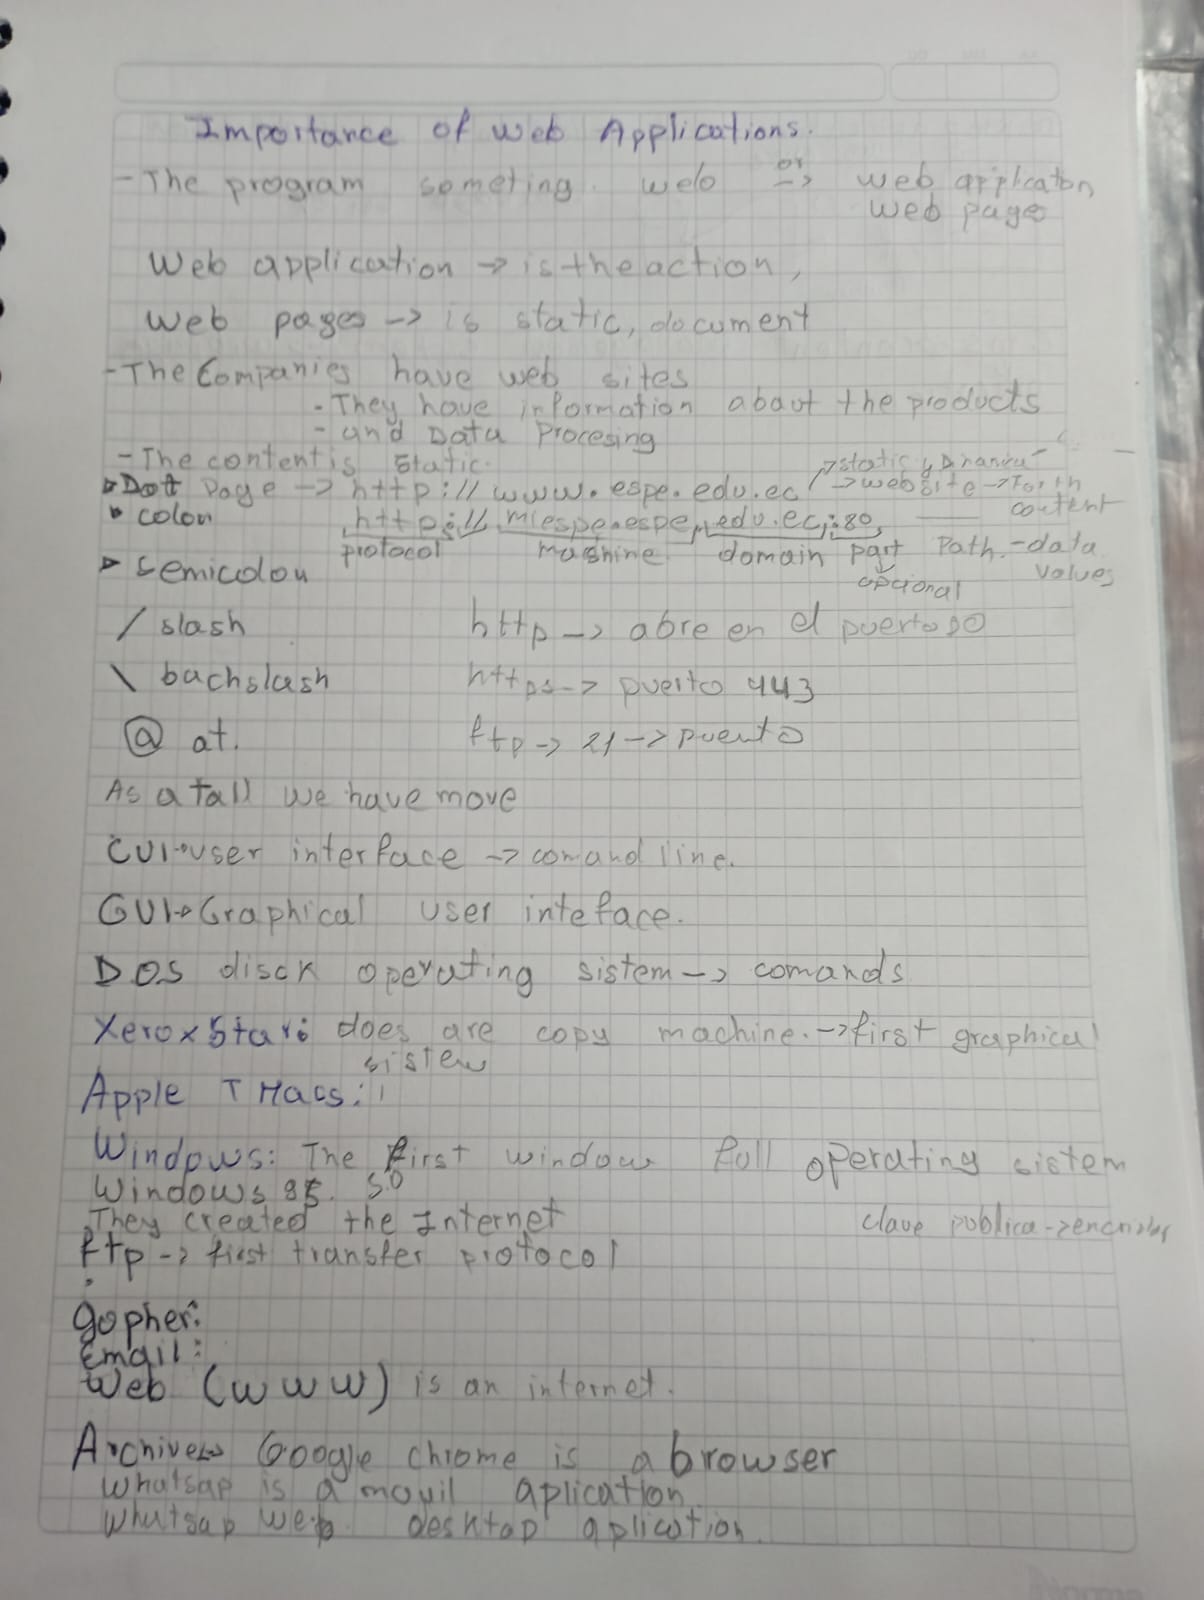 Importance of web Applications.
- The program someting. web or -> web applicaton,
web pages
Web application -> is the action,
Web pages -> is static, document
- The Companies have web sites
- They have information about the products
- and Data Procesing
- The content is static.
-> static y
Dott Page -> http://www.espe.edu.ec -> website ->
content
colon http://miespe.espe.edu.ec:80,
protocol mashine domain part Path. - data
values
opcional
Semicolon
/ slash http -> abre en el puerto 80
\ bachslash https -> puerto 443
@ at. ftp -> 21 -> puerto
As a tall we have move
CUI -> user interface -> comand line.
GUI -> Graphical user inteface.
DOS disck operating sistem -> comands
Xerox Star: does are copy machine. -> first graphical
sistem
Apple Macs:
Windows: The first window full operating sistem
Windows 95. S.O
They created the Internet clave publica ->
ftp -> first transfer protocol
gopher:
Email:
Web (WWW) is an internet.
Archive Google chrome is a browser
Whatsap is a movil aplication
Whatsap web desktap aplication.